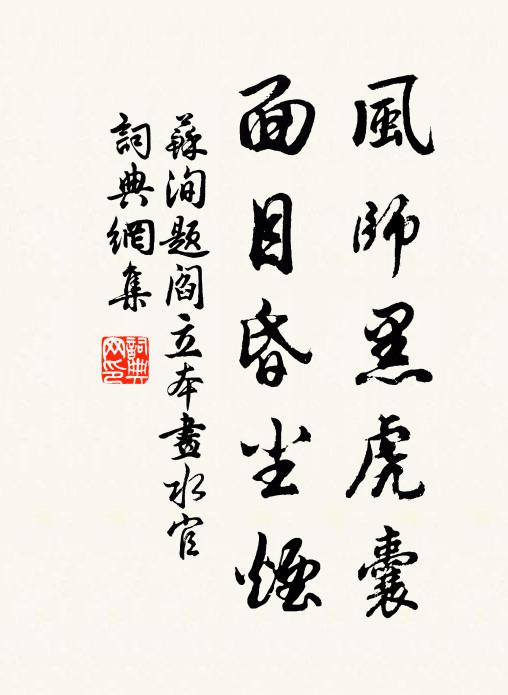 風師黑虎囊
面目昏尘煙
蘇洵题阎立本畫水官
詞典網集
詞典
网印